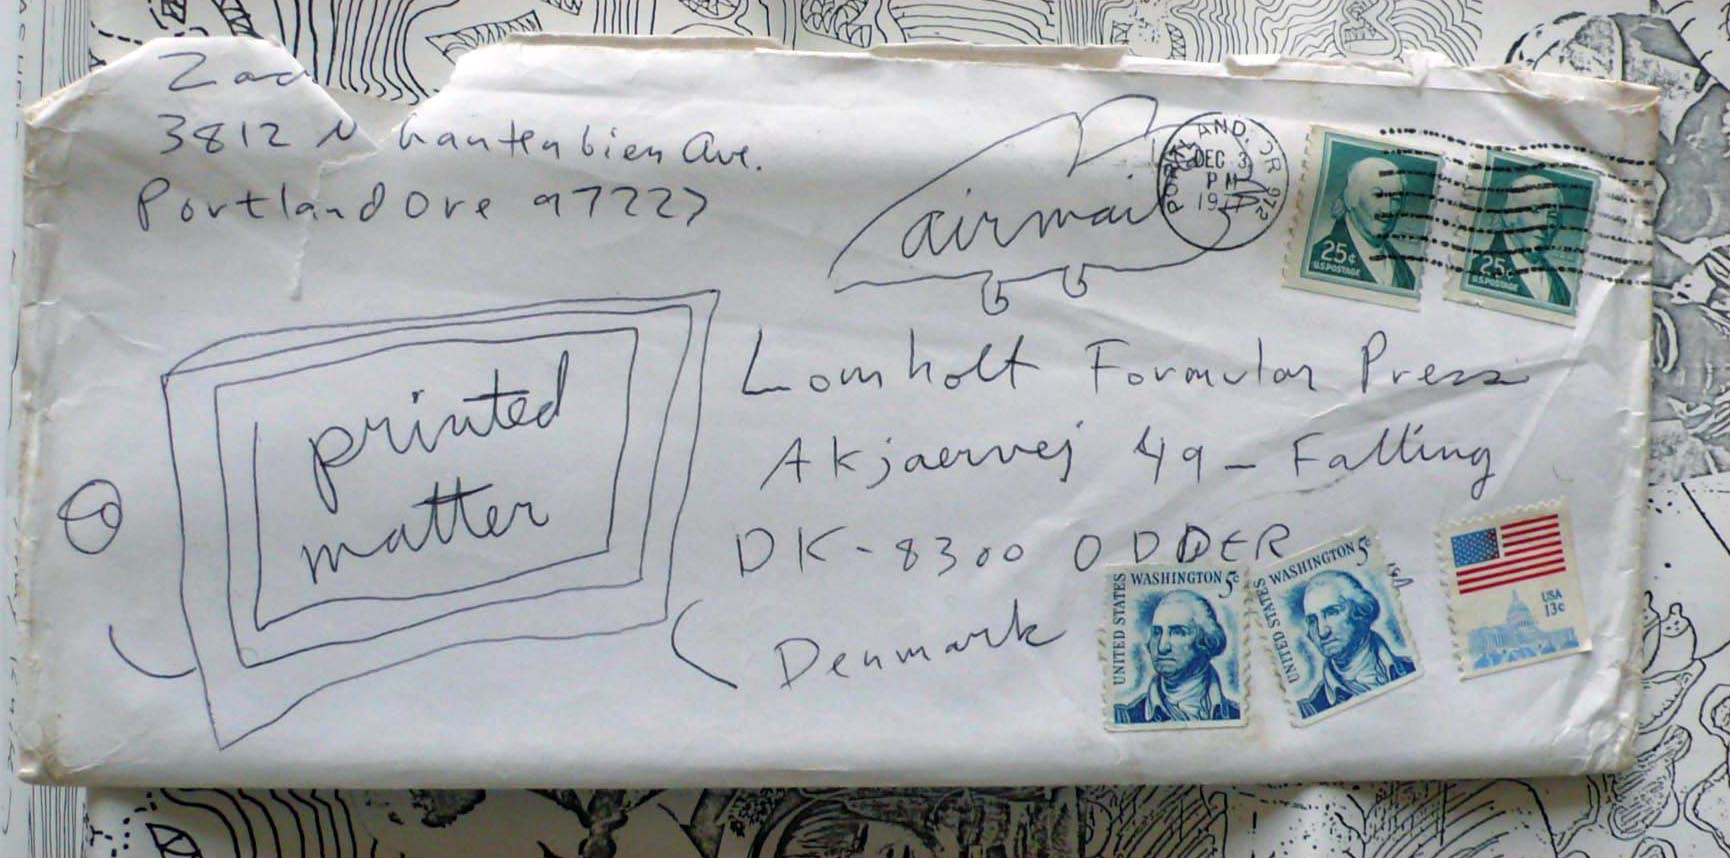 Zac
3812 N Gantenbien Ave.
Portland Ore 97227
airmail
PORTLAND, OR 972
DEC 3
PM
25¢
U.S. POSTAGE
25¢
U.S. POSTAGE
printed
matter
Lomholt Formular Press
Akjaervej 49 - Falling
DK-8300 ODDER
Denmark
UNITED STATES
WASHINGTON 5¢
UNITED STATES
WASHINGTON 5¢
USA
13¢